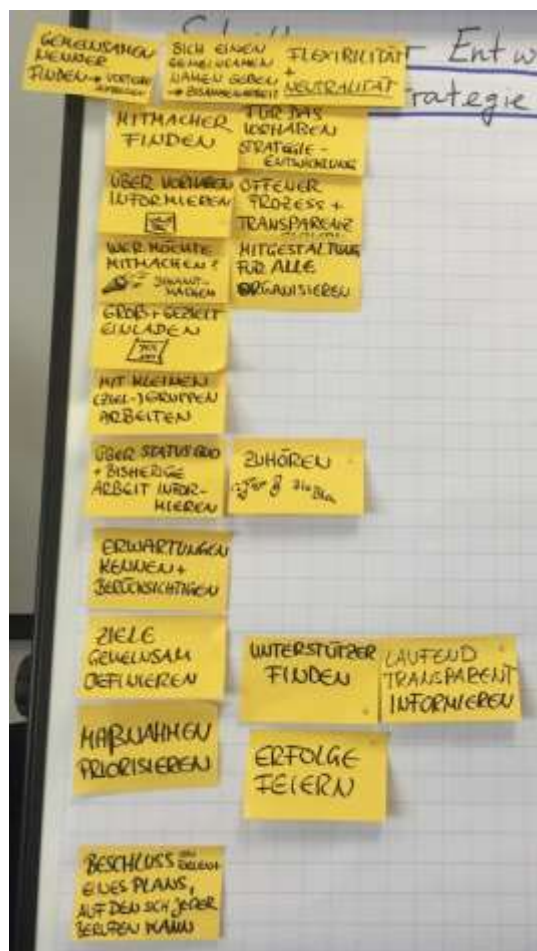 Entw
rategie
GEMEINSAMEN
NENNER
FINDEN → VORTEILE
SICH EINEN
GEMEINSAMEN
NAMEN GEBEN
FLEXIBILITÄT
+
NEUTRALITÄT
MITMACHER
FINDEN
FÜR DAS
VORHABEN
STRATEGIE-
ENTWICKLUNG
ÜBER VORHABEN
INFORMIEREN
OFFENER
PROZESS +
TRANSPARENZ
WER MÖCHTE
MITMACHEN?
MITGESTALTUNG
FÜR ALLE
ORGANISIEREN
GROß + GEZIELT
EINLADEN
MIT KLEINEN
(ZIEL-)GRUPPEN
ARBEITEN
ÜBER STATUS QUO
+ BISHERIGE
ARBEIT INFOR-
MIEREN
ZUHÖREN
ERWARTUNGEN
KENNEN +
BERÜCKSICHTIGEN
ZIELE
GEMEINSAM
DEFINIEREN
UNTERSTÜTZER
FINDEN
LAUFEND
TRANSPARENT
INFORMIEREN
MAßNAHMEN
PRIORISIEREN
ERFOLGE
FEIERN
BESCHLUSS
EINES PLANS,
AUF DEN SICH JEDER
BERUFEN KANN